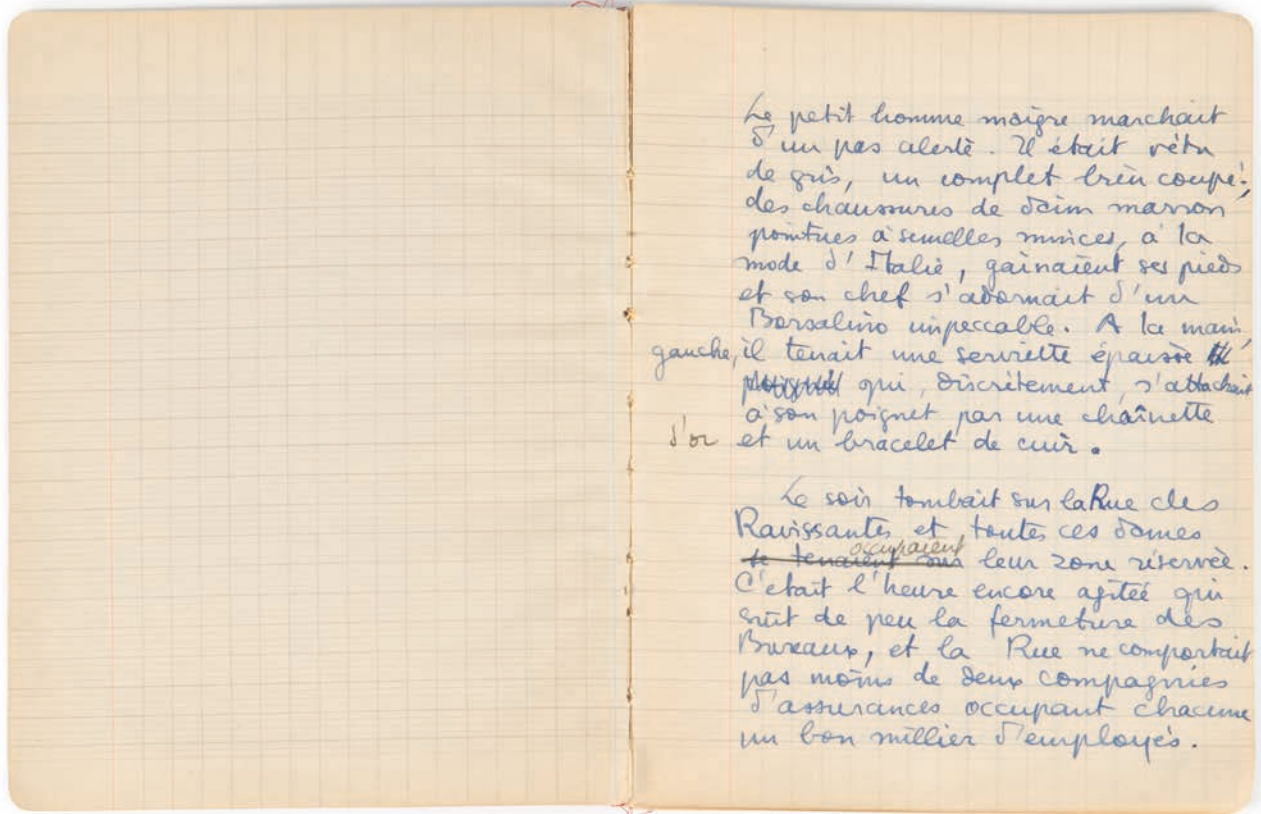 Le petit homme maigre marchait
d'un pas alerte. Il était vêtu
de gris, un complet bien coupé;
des chaussures de daim marron
pointues à semelles minces, à la
mode d'Italie, gainaient ses pieds
et son chef s'adornait d'un
Borsalino impeccable. A la main
gauche, il tenait une serviette épaisse
qui, discrètement, s'attachait
à son poignet par une chaînette
d'or et un bracelet de cuir.
Le soir tombait sur la Rue des
Ravissantes et toutes ces dames
occupaient
se tenaient sur leur zone réservée.
C'était l'heure encore agitée qui
suit de peu la fermeture des
Bureaux, et la Rue ne comportait
pas moins de deux compagnies
d'assurances occupant chacune
un bon millier d'employés.